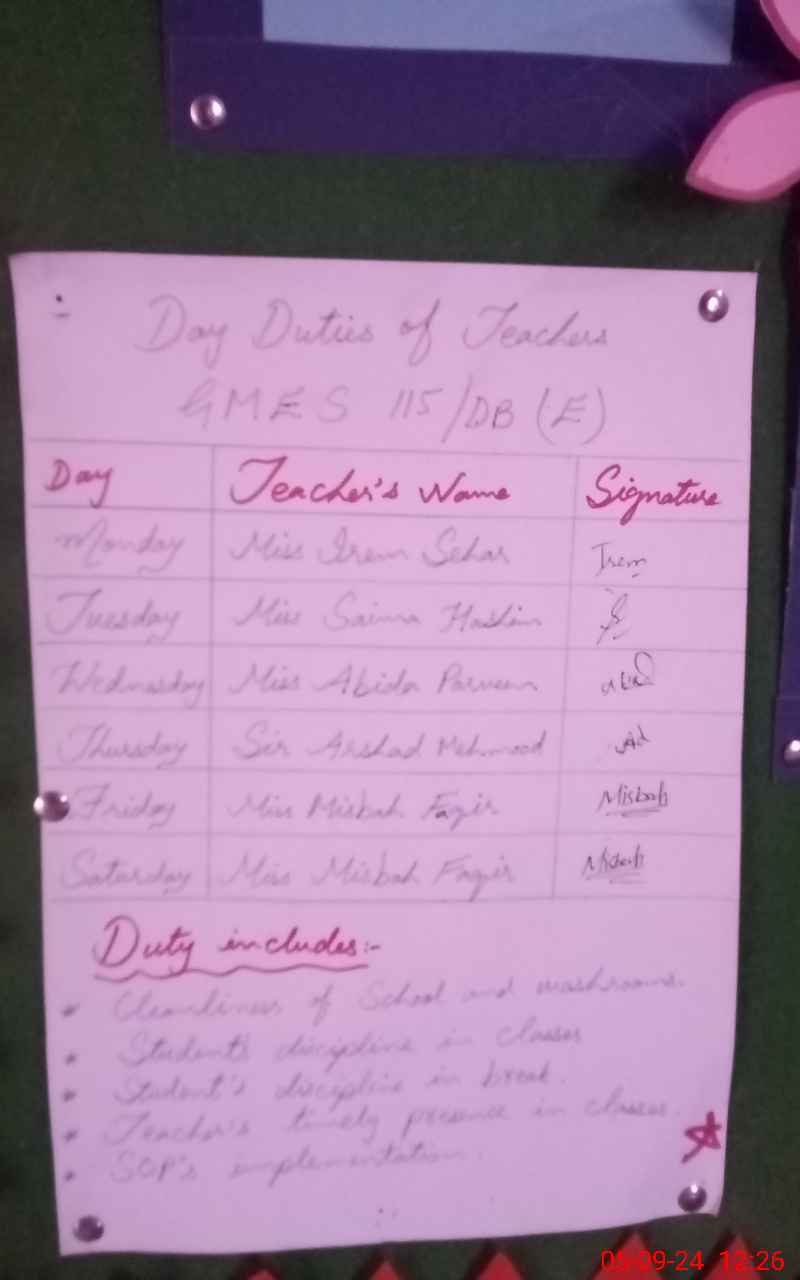 Day Duties of Teachers
GMES 115/DB (E)
Day Teacher's Name Signature
Monday Miss Irem Sehar Irem
Tuesday Miss Saima Hashim
Wednesday Miss Abida Parveen
Thursday Sir Arshad Mehmood
Friday Miss Misbah Faqir Misbah
Saturday Miss Misbah Faqir Misbah
Duty includes:-
* Cleanliness of School and washrooms.
* Student's discipline in classes
* Student's discipline in break.
* Teacher's timely presence in classes.
* SOP's implementation.
05-09-24 12:26